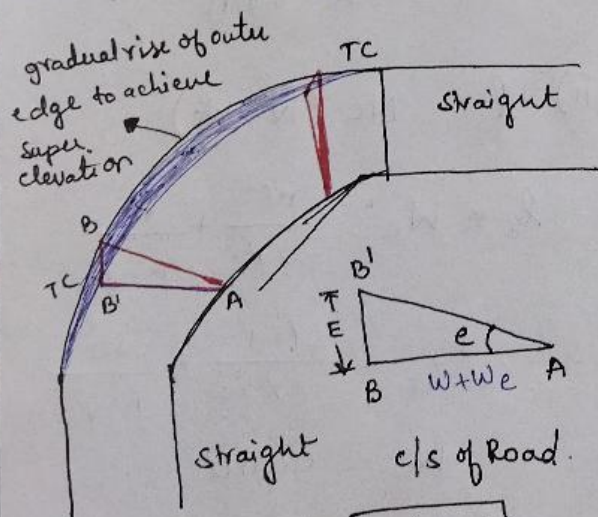 gradual rise of outer
edge to achieve
super.
elevation
TC
Straight
B
TC
B'
A
B'
E
e
B
W+We
A
Straight
c/s of Road.